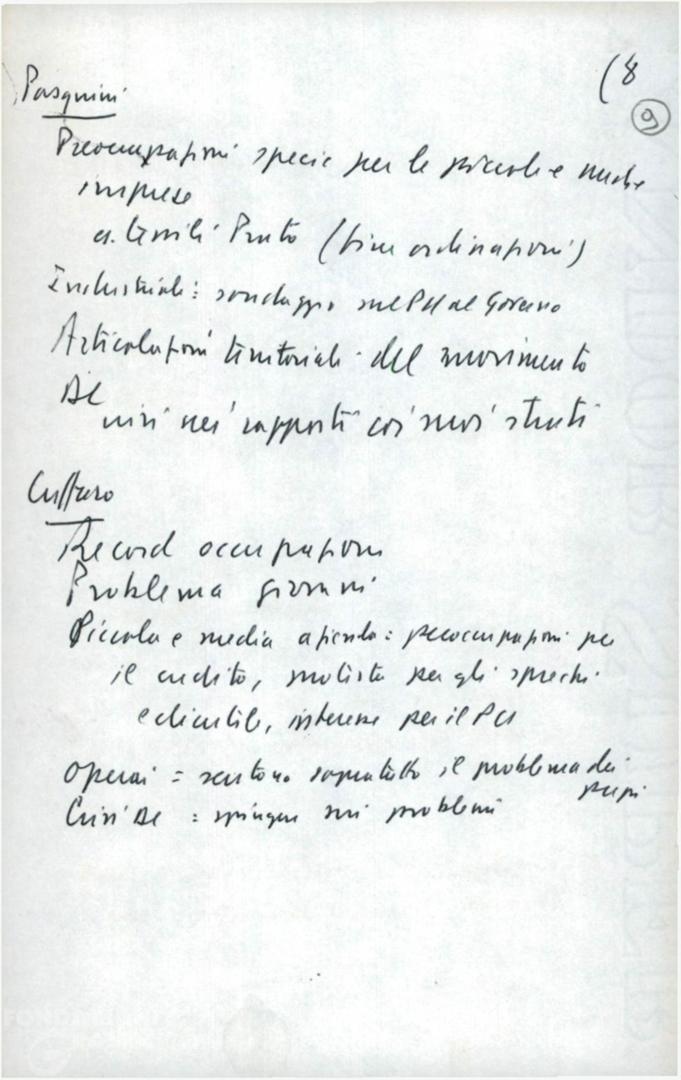 (8
9
Pasquini
Preoccupazioni specie per le piccole e medie
imprese
Prato (fine ordinazioni)
Industriali: sondaggio sul PCI al Governo
Articolazioni territoriali del movimento
DC
crisi nei rapporti coi suoi strati
Cuffaro
Record occupazione
Problema giovani
Piccola e media azienda: preoccupazioni per
il credito, protesta per gli sprechi
e clientele, interesse per il PCI
Operai = sentono soprattutto il problema dei
prezzi
Crisi DC : spingere sui problemi